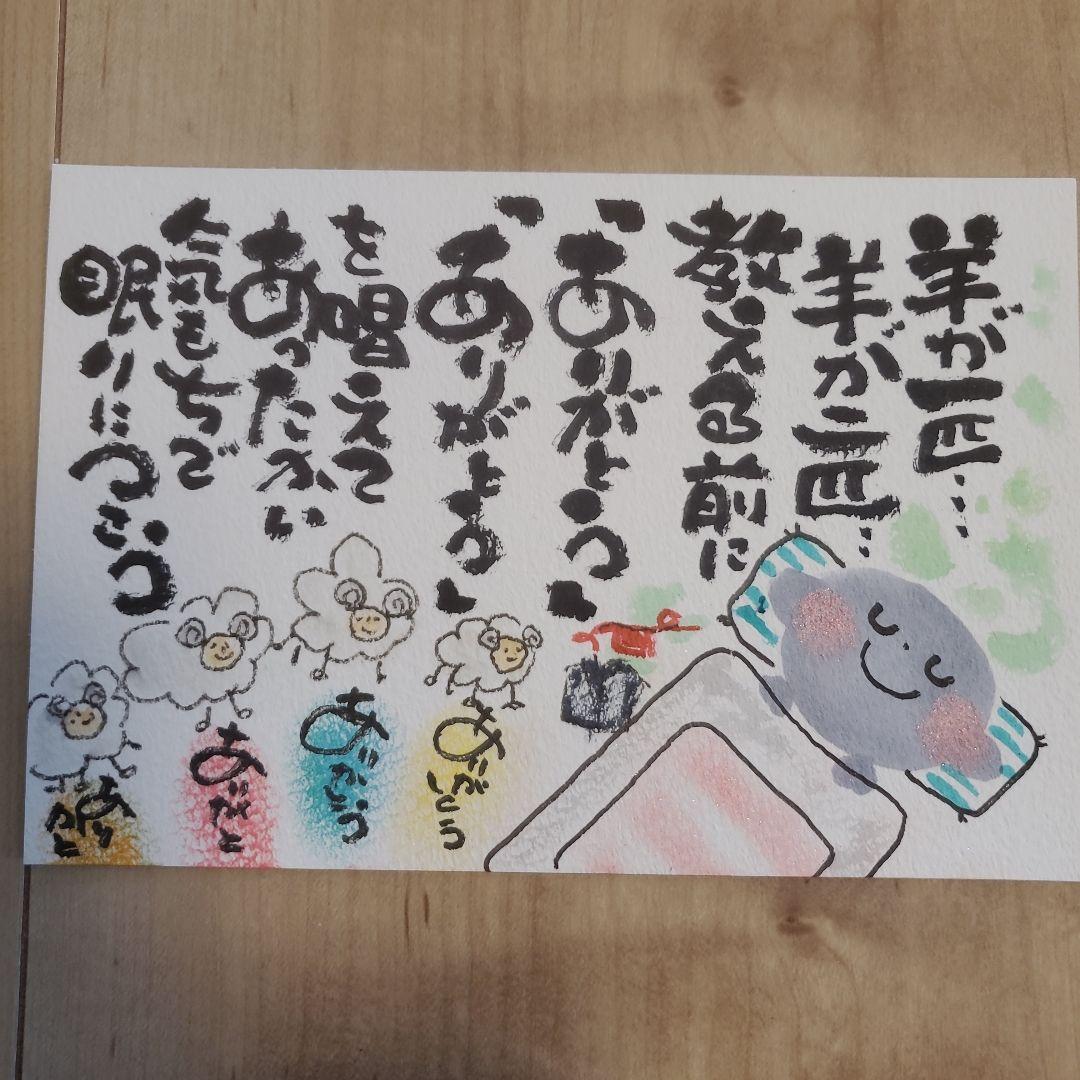 羊が一匹…
羊が二匹…
教える前に
「ありがとう」
「ありがとう」
を唱えて
あったかい
気もちで
眠りにつこう
ありがとう
ありがとう
ありがと
あり
がと